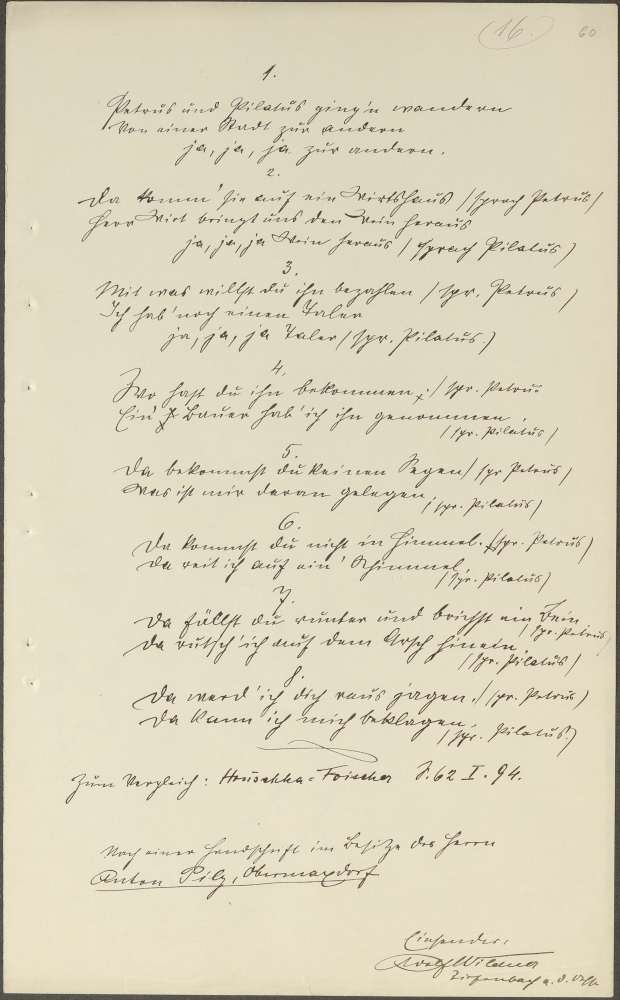 16.
60
1.
Petrus und Pilatus ging'n wandern
Von einer Stadt zur andern
ja, ja, ja zur andern.
2.
Da komm' sie auf ein Wirtshaus / sprach Petrus /
Herr Wirt bringt uns den Wein heraus
ja, ja, ja Wein heraus / sprach Pilatus /
3.
Mit was willst du ihn bezahlen / spr. Petrus /
Ich hab' noch einen Taler
ja, ja, ja Taler / spr. Pilatus. /
4.
Wo hast du ihn bekommen, / spr. Petrus
Ein' Bauer hab' ich ihn genommen,
/ spr. Pilatus /
5.
Da bekommst du keinen Segen / spr Petrus /
Was ist mir daran gelegen,
/ spr. Pilatus /
6.
Da kommst du nicht in Himmel. / spr. Petrus /
Da reit ich auf ein' Schimmel,
/ spr. Pilatus /
7.
Da fällst du runter und brichst ein Bein
/ spr. Petrus /
Da rutsch' ich auf dem Arsch hinein,
/ spr. Pilatus /
8.
Da werd' ich dich raus jagen. / spr. Petrus /
Da kann ich mich beklagen,
/ spr. Pilatus. /
Zum Vergleich: Hruschka-Toischer S. 62 I. 94.
Nach einer Handschrift im Besitze des Herrn
Anton Pilz, Obermaxdorf
Einsender:
Adolf